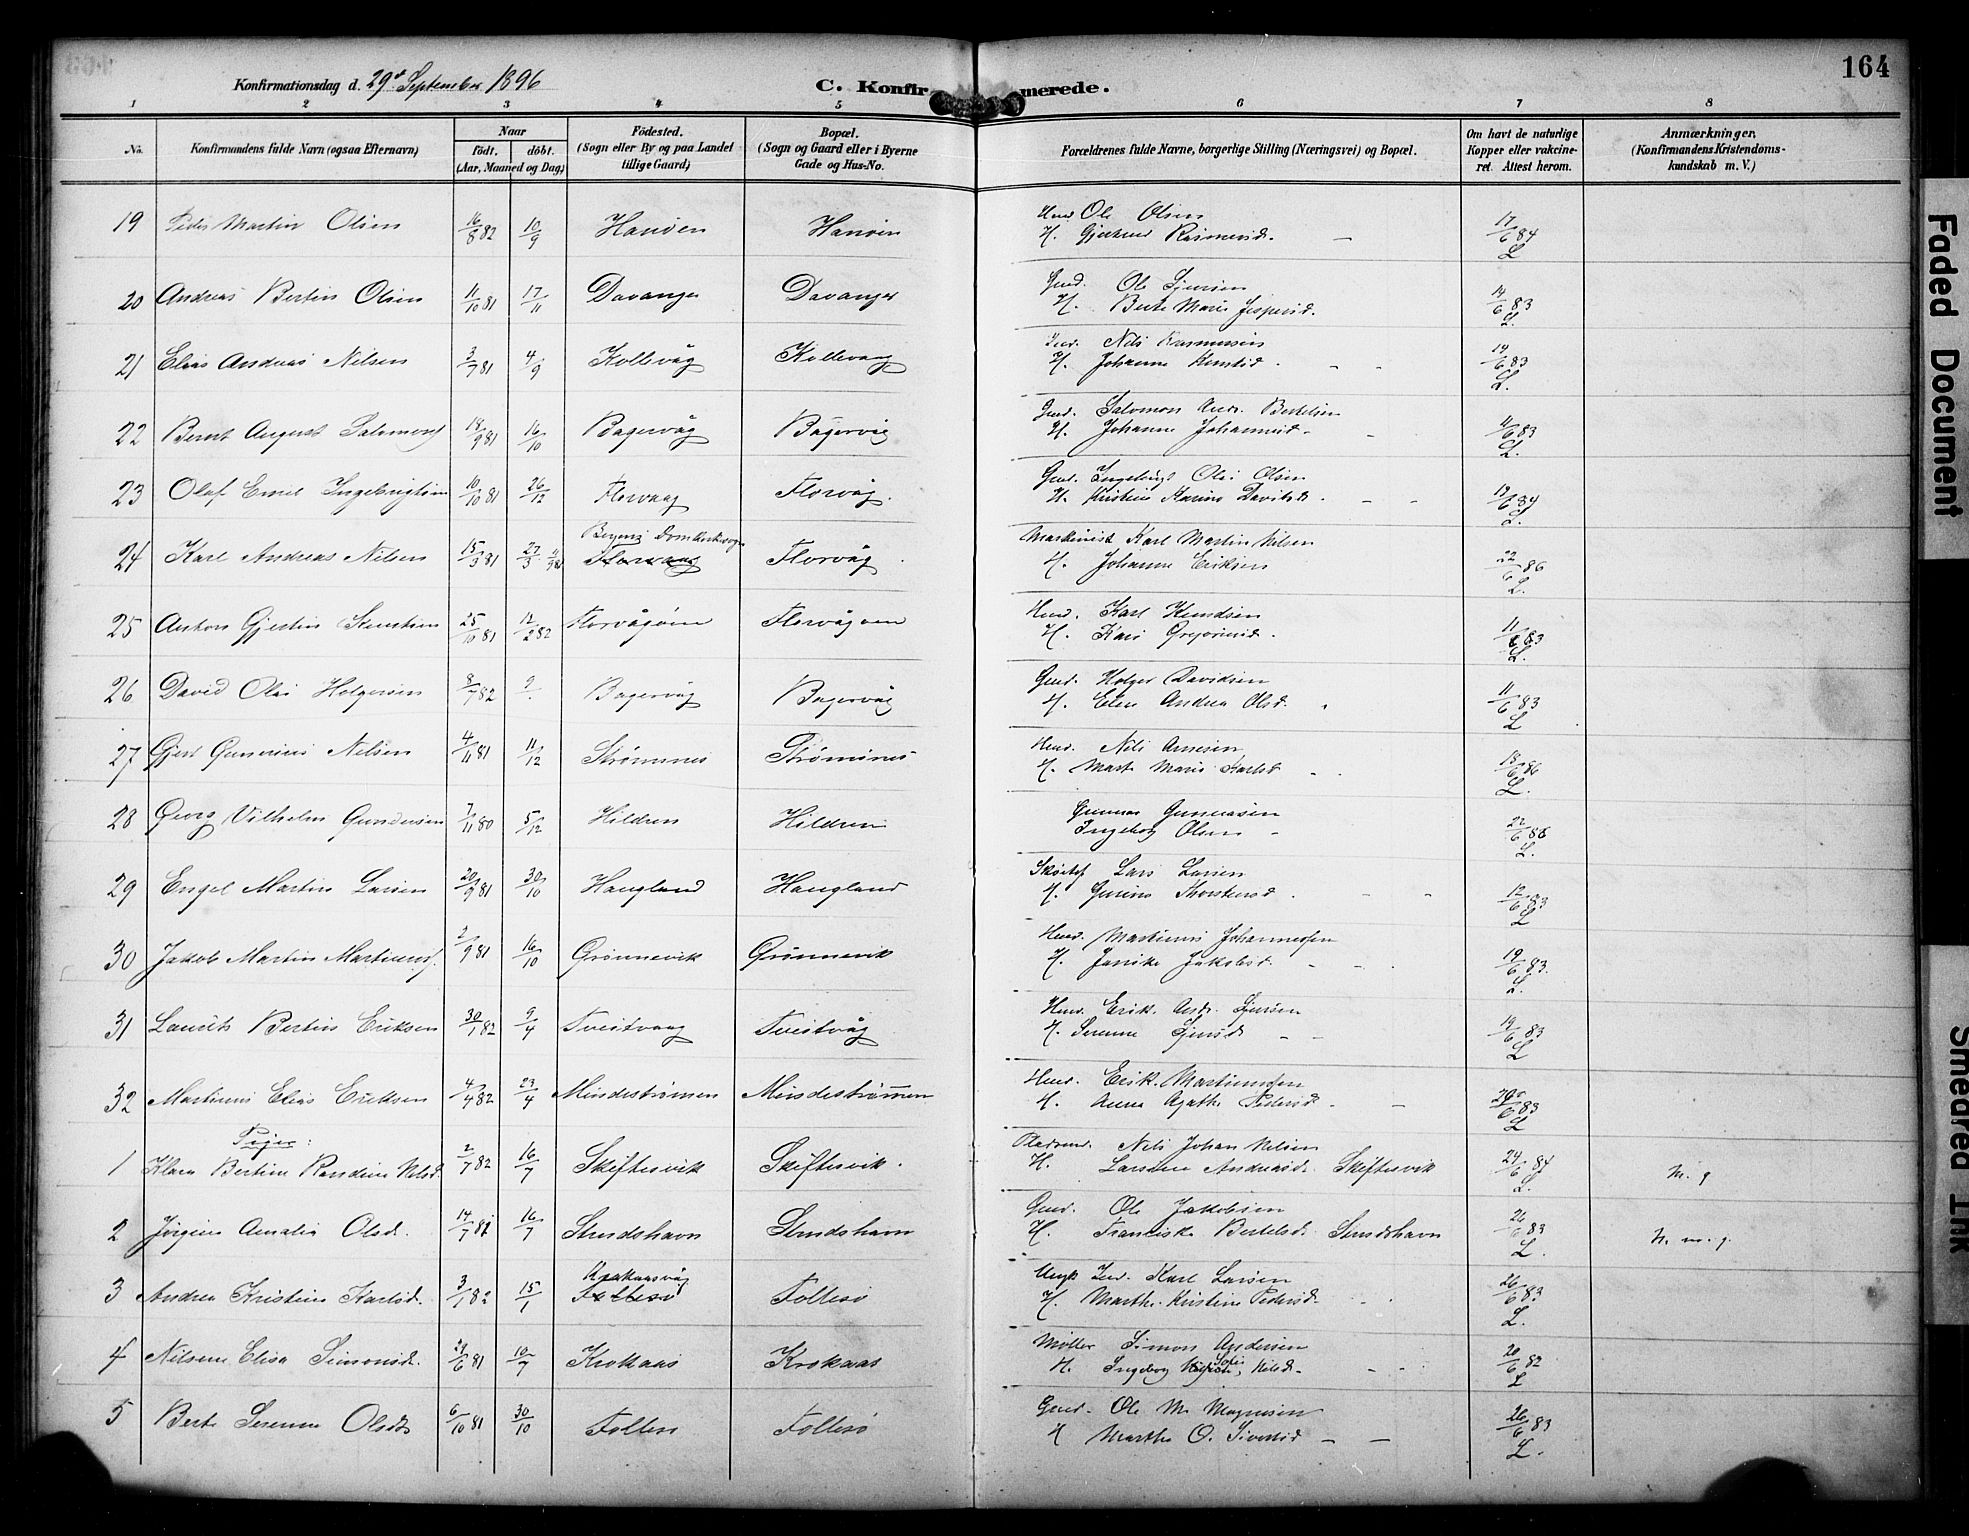 164
Konfirmationsdag d. 29de September 1896
C. Konfirmerede.
1 2 3 4 5 6 7 8
No.
Konfirmandens fulde Navn (ogsaa Efternavn)
Naar
født. døbt.
(Aar, Maaned og Dag)
Födested.
(Sogn eller By og paa Landet
tillige Gaard)
Bopæl.
(Sogn og Gaard eller i Byerne
Gade og Hus-No.
Forældrenes fulde Navne, borgerlige Stilling (Næringsvei) og Bopæl.
Om havt de naturlige
Kopper eller vakcine-
ret. Attest herom.
Anmærkninger.
(Konfirmandens Kristendoms-
kundskab m. V.)
19 Peder Martin Olsen 16/8 82 10/9 Hanöen Hanöen Ole Olsen 17/6 84
H. Gjertrud Rasmusd. L
20 Andreas Bertin Olsen 11/10 81 17/11 Davanger Davanger Gmd. Ole Sjursen 14/6 83
H. Berte Marie Jespersd. L.
21 Elias Andreas Nilsen 3/7 81 4/9 Kollevåg Kollevaag Nils Rasmussen 19/6 83
H. Johanne Knutsd. L.
22 Bernt August Salomons 18/9 81 16/10 Bagervåg Bagervåg Gmd. Salomon Andr. Bertelsen 11/6 83
H. Johanne Johannesd. L.
23 Olaf Emil Ingebrigtsen 10/10 81 26/12 Florvaag Florvåg. Gmd. Ingebrigt Olai Olsen
H. Kristine Karine Davidsd. L.
24 Karl Andreas Nilsen 15/3 81 27/3 Bergens Domkirkesogn Florvaag Florvåg Maskinist Karl Martin Nilsen 22/6 86
H. Johanne Eriksen L.
25 Anton Gjertin Knutsen 25/10 81 12/2 82 Florvågøen Florvågøen Karl Knudsen 11/6 83
H. Kari Gregoriusd. L.
26 David Olai Holgersen 8/7 82 Bagervåg Bagervåg Gmd. Holger Davidsen 11/6 83
H. Elen Andrea Olsd. L
27 Gjert Gunerius Nilsen 4/11 81 11/12 Strømsnes Strømsnes Nils Arnesen 18/6 86
H. Marte Marie Karlsd L
28 Georg Vilhelm Gundersen 7/11 80 5/12 Hildren Hildren Gunnar Gunnarsen
Ingeborg Olsen L.
29 Engel Martin Larsen 20/9 81 30/10 Haugland Haugland Lars Larsen 12/6 83
H. Gurine Thorstensd. L
30 Jakob Martin Martinus. 2/9 81 16/10 Grönnevik Grönnevik Martinus Johannessen 19/6 83.
H. Janike Jakobsd. L.
31 Laurits Bertin Eriksen 30/1 82 9/4 Tveitvaag Tveitvåg Erik Andr. Sjursen 19/6 83
H. Serenne Sjursd. L
32 Martinus Elias Eriksen 4/4 82 23/4 Mindeströmen Mindeströmmen Erik Martinussen
H. Anna Agathe Pedersd. L
Piger:
1 Klara Bertine Randine Nilsd. 2/7 82 16/7 Skiftesvik Skiftesvik. Pladsmd. Nils Johan Nilsen 24/6 84 m. g
H. Larsine Andreasd. Skiftesvik L.
2 Jörgine Amalie Olsd. 14/7 82 16/7 Strudshavn Strudshavn Gmd. Ole Jakobsen 26/6 83 n. m. g.
H. Franciska Bertelsd. Strudshavn L.
3 Andrea Kristine Karlsd. 3/1 82 15/1 Krokaasvåg Follesö Follesö Karl Larsen 26/6 83
H. Marthe Kristine Pedersd. L.
4 Nilsine Elisa Simonsd. 24/6 81 10/7 Krokaas Krokaas Møller Simon Andersen 20/6 82
H. Ingeborg Sofie Nilsd. L
5 Berte Serenne Olsdt 6/10 81 30/10 Follesö Follesö Gmd. Ole M. Magnesen 26/6 83
H Marthe O. Siversd L.
Faded Document
Smeared Ink